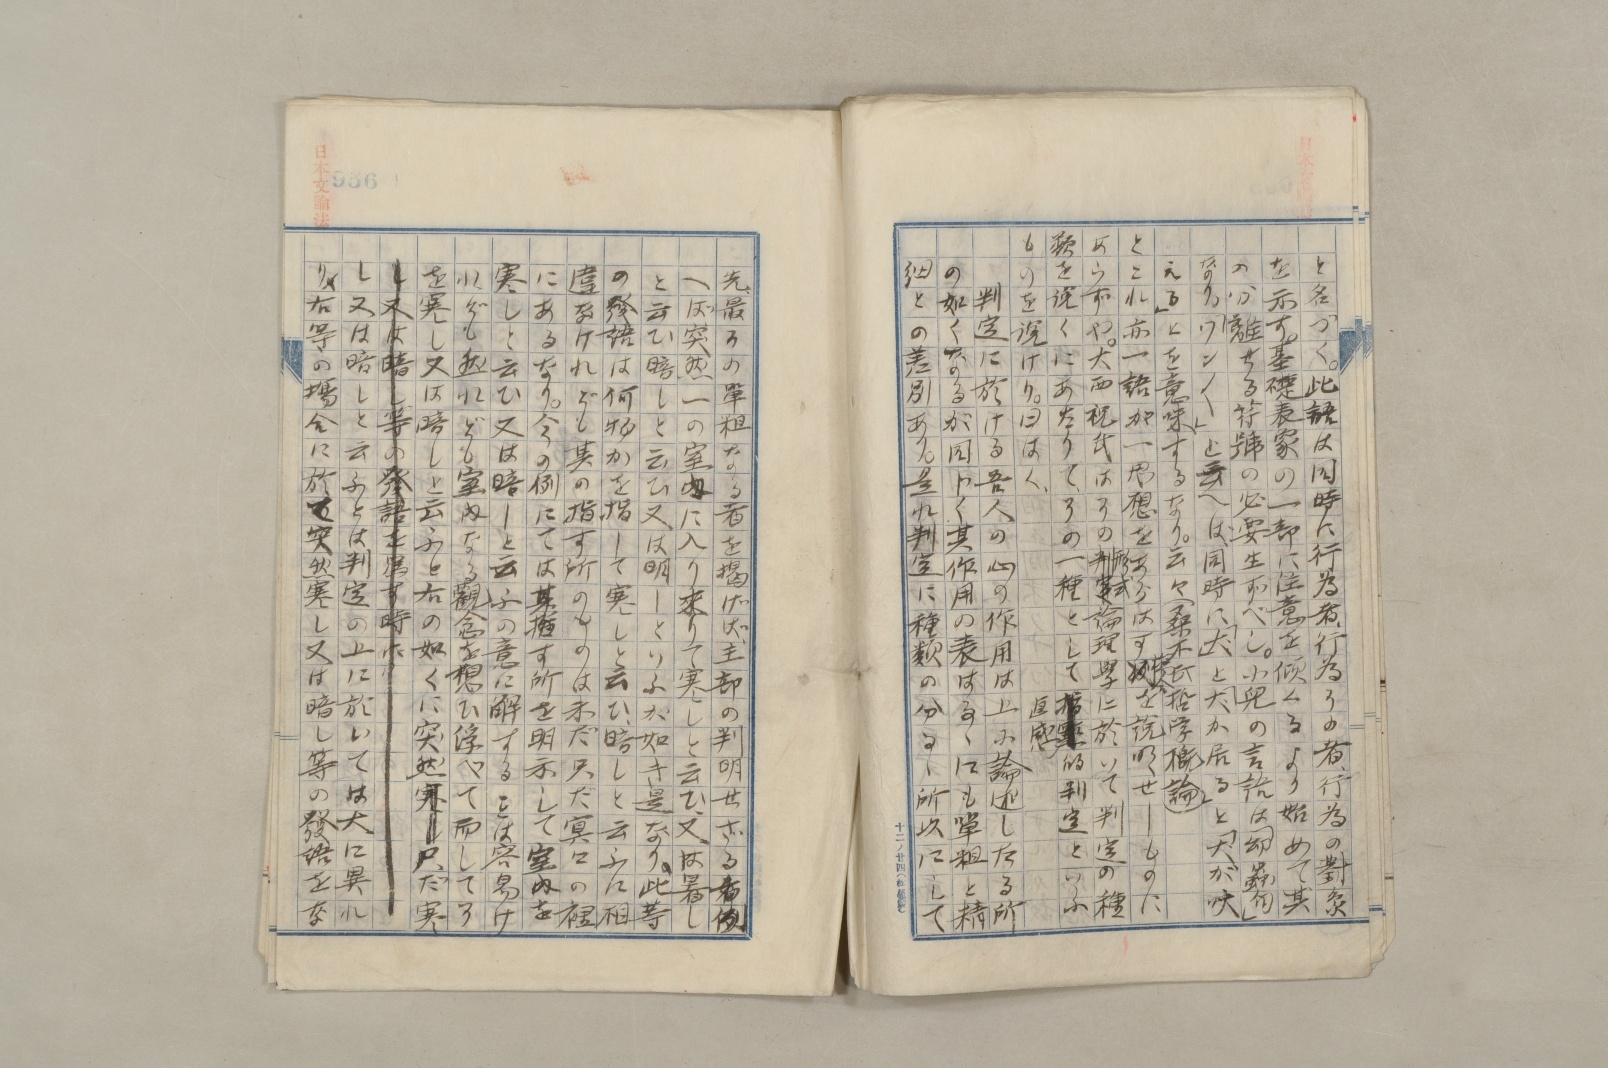 と名づく。此語は同時に行為者、行為その者、行為の對象
を示す。基礎表象の一部に注意を傾くるより始めて其
の分離せる符號の必要生ずべし。小兒の言語は
なり。「ワンワン」と云へば、同時に「犬」と「犬が居る」と「犬が吠
える」とを意味するなり。云々(桑木氏哲学概論)
とこれ亦一語が一思想をあらはすを説明せしものに
あらずや。大西祝氏はその形式論理學に於いて判定の種
類を説くにあたりて、その一種として直感的判定といふ
ものを説けり。曰はく、
判定に於ける吾人の心の作用は上に論述したる所
の如くなるが同じく其作用の表はるゝにも單粗と精
細との差別あり。是れ判定に種類の分るゝ所以にして
十二ノ廿四
日本文論法
956
先、最その單粗なる者を擧げば、主部の判明せざる者例
へば突然一の室内に入り來りて寒しと云ひ又は暑し
と云ひ暗しと云ひ又は明しといふが如き是なり。此等
の發語は何物かを指して寒しと云ひ、暗しと云ふに相
違なけれども其の指す所のものは未だ只だ冥々の裡
にあるなり。今の例にては其指す所を明示して室内を
寒しと云ひ又は暗しと云ふの意に解するこは容易け
れども然れども室内なる觀念を想ひ浮べて而してそ
を寒し又は暗しと云ふと右の如くに突然只だ寒
し又は暗し等の發語を為す時に
し又は暗しと云ふとは判定の上に於いては大に異れ
り。右等の場合に於て突然寒し又は暗し等の發語をな